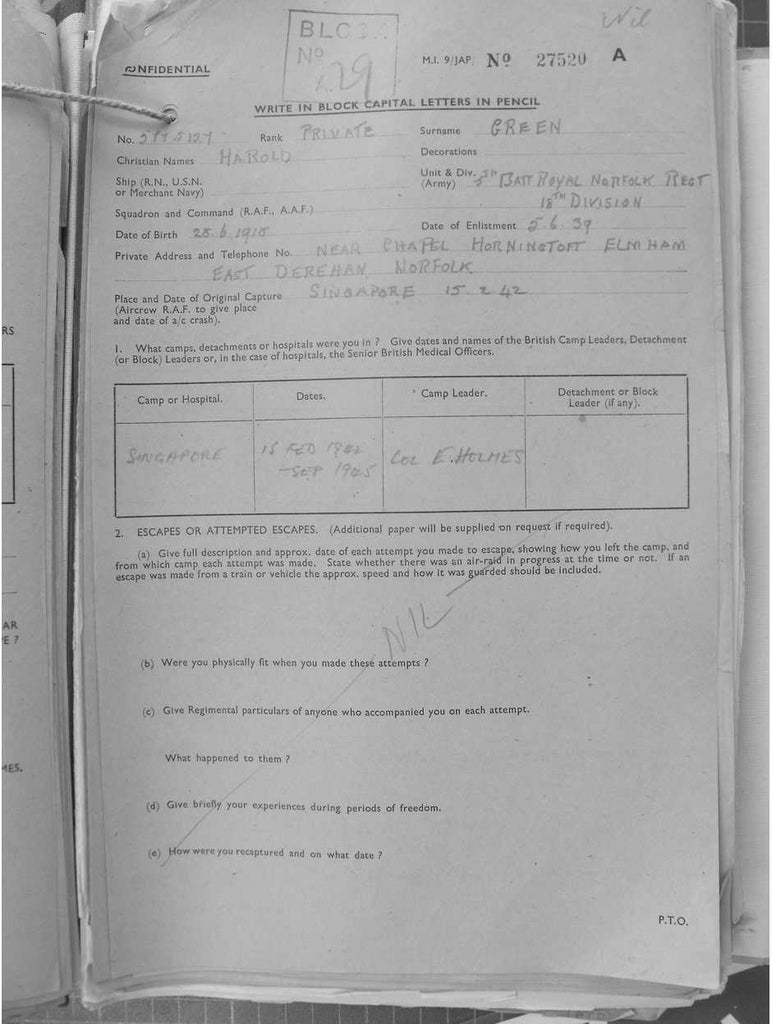 Nil
BLOCK
No
29
CONFIDENTIAL
M.I. 9/JAP. No 27520 A
WRITE IN BLOCK CAPITAL LETTERS IN PENCIL
No. Rank PRIVATE Surname GREEN
Christian Names HAROLD Decorations
Ship (R.N., U.S.N. or Merchant Navy) Unit & Div. (Army) 5TH BATT ROYAL NORFOLK REGT
18TH DIVISION
Squadron and Command (R.A.F., A.A.F.)
Date of Birth 28.6.1918 Date of Enlistment 5.6.39
Private Address and Telephone No. NEAR CHAPEL HORNINGTOFT ELMHAM
EAST DEREHAM, NORFOLK
Place and Date of Original Capture SINGAPORE 15.2.42
(Aircrew R.A.F. to give place
and date of a/c crash).
1. What camps, detachments or hospitals were you in ? Give dates and names of the British Camp Leaders, Detachment
(or Block) Leaders or, in the case of hospitals, the Senior British Medical Officers.
Camp or Hospital. Dates. Camp Leader. Detachment or Block
Leader (if any).
SINGAPORE 15 FEB 1942 COL E. HOLMES
-SEP 1945
2. ESCAPES OR ATTEMPTED ESCAPES. (Additional paper will be supplied on request if required).
(a) Give full description and approx. date of each attempt you made to escape, showing how you left the camp, and
from which camp each attempt was made. State whether there was an air-raid in progress at the time or not. If an
escape was made from a train or vehicle the approx. speed and how it was guarded should be included.
NIL
(b) Were you physically fit when you made these attempts ?
(c) Give Regimental particulars of anyone who accompanied you on each attempt.
What happened to them ?
(d) Give briefly your experiences during periods of freedom.
(e) How were you recaptured and on what date ?
P.T.O.